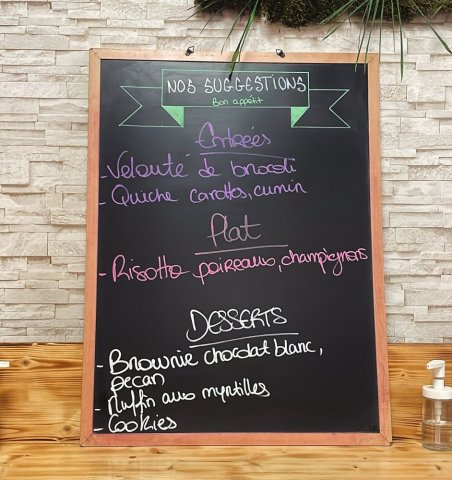 NOS SUGGESTIONS
Bon appetit
Entrées
- Velouté de brocoli
- Quiche carottes, cumin
Plat
- Risotto poireaux, champignons
DESSERTS
- Brownie chocolat blanc,
pecan
- Muffin aux myrtilles
- Cookies